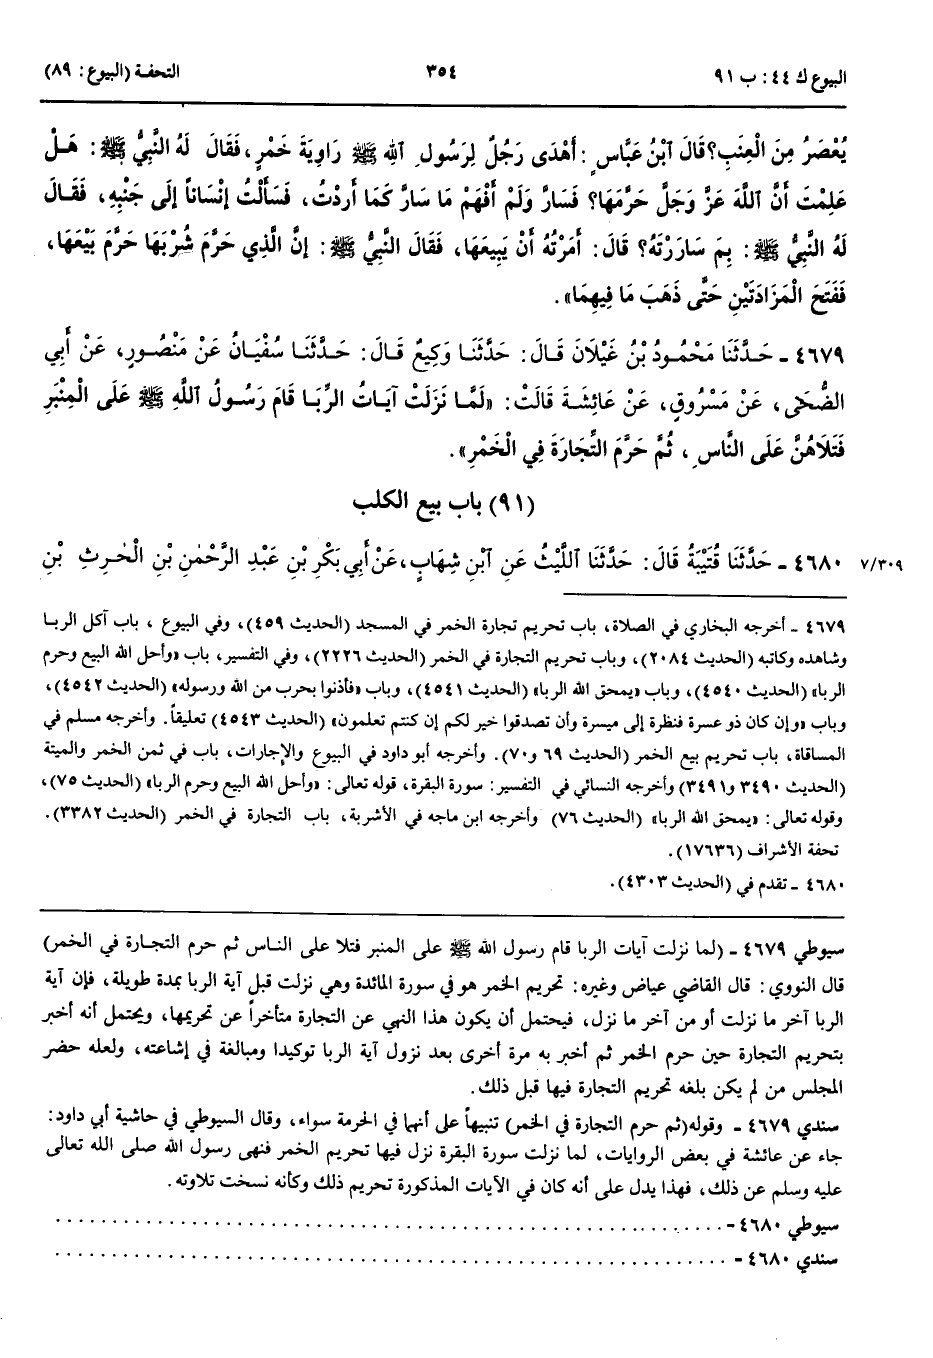 البيوع ك ٤٤: ب ٩١ ٣٥٤ التحفة (البيوع: ٨٩)
يُعْصَرُ مِنَ الْعِنَبِ؟ قَالَ ٱبْنُ عَبَّاسٍ: أَهْدَى رَجُلٌ لِرَسُولِ ٱللهِ ﷺ رَاوِيَةَ خَمْرٍ، فَقَالَ لَهُ النَّبِيُّ ﷺ: هَلْ
عَلِمْتَ أَنَّ ٱللَّهَ عَزَّ وَجَلَّ حَرَّمَهَا؟ فَسَارَّ وَلَمْ أَفْهَمْ مَا سَارَّ كَمَا أَرَدْتُ، فَسَأَلْتُ إِنْسَاناً إِلَى جَنْبِهِ، فَقَالَ
لَهُ النَّبِيُّ ﷺ: بِمَ سَارَرْتَهُ؟ قَالَ: أَمَرْتُهُ أَنْ يَبِيعَهَا، فَقَالَ النَّبِيُّ ﷺ: إِنَّ الَّذِي حَرَّمَ شُرْبَهَا حَرَّمَ بَيْعَهَا،
فَفَتَحَ الْمَزَادَتَيْنِ حَتَّى ذَهَبَ مَا فِيهِمَا».
٤٦٧٩ - حَدَّثَنَا مَحْمُودُ بْنُ غَيْلَانَ قَالَ: حَدَّثَنَا وَكِيعٌ قَالَ: حَدَّثَنَا سُفْيَانُ عَنْ مَنْصُورٍ، عَنْ أَبِي
الضُّحَى، عَنْ مَسْرُوقٍ، عَنْ عَائِشَةَ قَالَتْ: «لَمَّا نَزَلَتْ آيَاتُ الرِّبَا قَامَ رَسُولُ ٱللَّهِ ﷺ عَلَى الْمِنْبَرِ
فَتَلَاهُنَّ عَلَى النَّاسِ، ثُمَّ حَرَّمَ التِّجَارَةَ فِي الْخَمْرِ».
(٩١) باب بيع الكلب
٤٦٨٠ - حَدَّثَنَا قُتَيْبَةُ قَالَ: حَدَّثَنَا ٱللَّيْثُ عَنِ ٱبْنِ شِهَابٍ، عَنْ أَبِي بَكْرِ بْنِ عَبْدِ الرَّحْمٰنِ بْنِ الْحٰرِثِ بْنِ ٧/٣٠٩
٤٦٧٩ - أخرجه البخاري في الصلاة، باب تحريم تجارة الخمر في المسجد (الحديث ٤٥٩)، وفي البيوع، باب آكل الربا
وشاهده وكاتبه (الحديث ٢٠٨٤)، وباب تحريم التجارة في الخمر (الحديث ٢٢٢٦)، وفي التفسير، باب «وأحل الله البيع وحرم
الربا» (الحديث ٤٥٤٠)، وباب «يمحق الله الربا» (الحديث ٤٥٤١)، وباب «فأذنوا بحرب من الله ورسوله» (الحديث ٤٥٤٢)،
وباب «وإن كان ذو عسرة فنظرة إلى ميسرة وأن تصدقوا خير لكم إن كنتم تعلمون» (الحديث ٤٥٤٣) تعليقاً. وأخرجه مسلم في
المساقاة، باب تحريم بيع الخمر (الحديث ٦٩ و٧٠). وأخرجه أبو داود في البيوع والإجارات، باب في ثمن الخمر والميتة
(الحديث ٣٤٩٠ و٣٤٩١) وأخرجه النسائي في التفسير: سورة البقرة، قوله تعالى: «وأحل الله البيع وحرم الربا» (الحديث ٧٥)،
وقوله تعالى: «يمحق الله الربا» (الحديث ٧٦) وأخرجه ابن ماجه في الأشربة، باب التجارة في الخمر (الحديث ٣٣٨٢).
تحفة الأشراف (١٧٦٣٦).
٤٦٨٠ - تقدم في (الحديث ٤٣٠٣).
سيوطي ٤٦٧٩ - (لما نزلت آيات الربا قام رسول الله ﷺ على المنبر فتلا على الناس ثم حرم التجارة في الخمر)
قال النووي: قال القاضي عياض وغيره: تحريم الخمر هو في سورة المائدة وهي نزلت قبل آية الربا بمدة طويلة، فإن آية
الربا آخر ما نزلت أو من آخر ما نزل، فيحتمل أن يكون هذا النهي عن التجارة متأخراً عن تحريمها، ويحتمل أنه أخبر
بتحريم التجارة حين حرم الخمر ثم أخبر به مرة أخرى بعد نزول آية الربا توكيدا ومبالغة في إشاعته، ولعله حضر
المجلس من لم يكن بلغه تحريم التجارة فيها قبل ذلك.
سندي ٤٦٧٩ - وقوله(ثم حرم التجارة في الخمر) تنبيهاً على أنهما في الحرمة سواء، وقال السيوطي في حاشية أبي داود:
جاء عن عائشة في بعض الروايات، لما نزلت سورة البقرة نزل فيها تحريم الخمر فنهى رسول الله صلى الله تعالى
عليه وسلم عن ذلك، فهذا يدل على أنه كان في الآيات المذكورة تحريم ذلك وكأنه نسخت تلاوته.
سيوطي ٤٦٨٠ - . . . . . . . . . . . . . . . . . . . . . . . . . . . . . .
سندي ٤٦٨٠ - . . . . . . . . . . . . . . . . . . . . . . . . . . . . . .